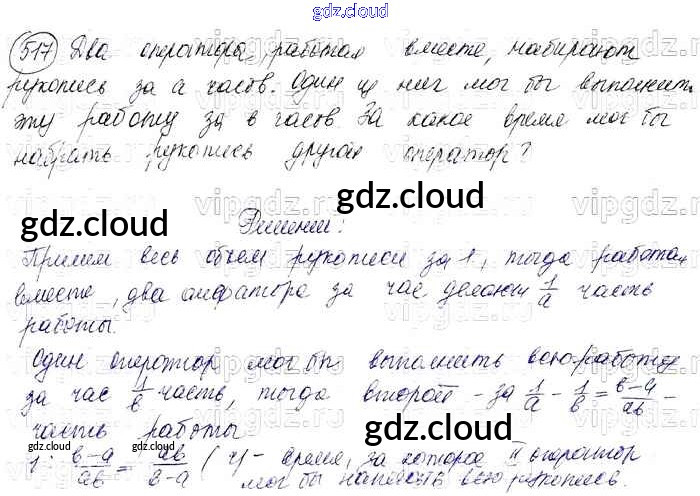 gdz.cloud
517 Два оператора, работая вместе, набирают
рукопись за a часов. Один из них мог бы выполнить
эту работу за в часов. За какое время мог бы
набрать рукопись другой оператор?
gdz.cloud
gdz.cloud gdz.cloud
Решение:
Примем весь объем рукописи за 1, тогда работая
вместе, два оператора за час делают 1/a часть
работы.
Один оператор мог бы выполнить всю работу
за час 1/в часть, тогда второй - за 1/a - 1/в = в-a/ав -
часть работы
gdz.cloud gdz.cloud gdz.cloud
1: в-a/ав = ав/в-a (ч) - время, за которое II оператор
мог бы написать всю рукопись.